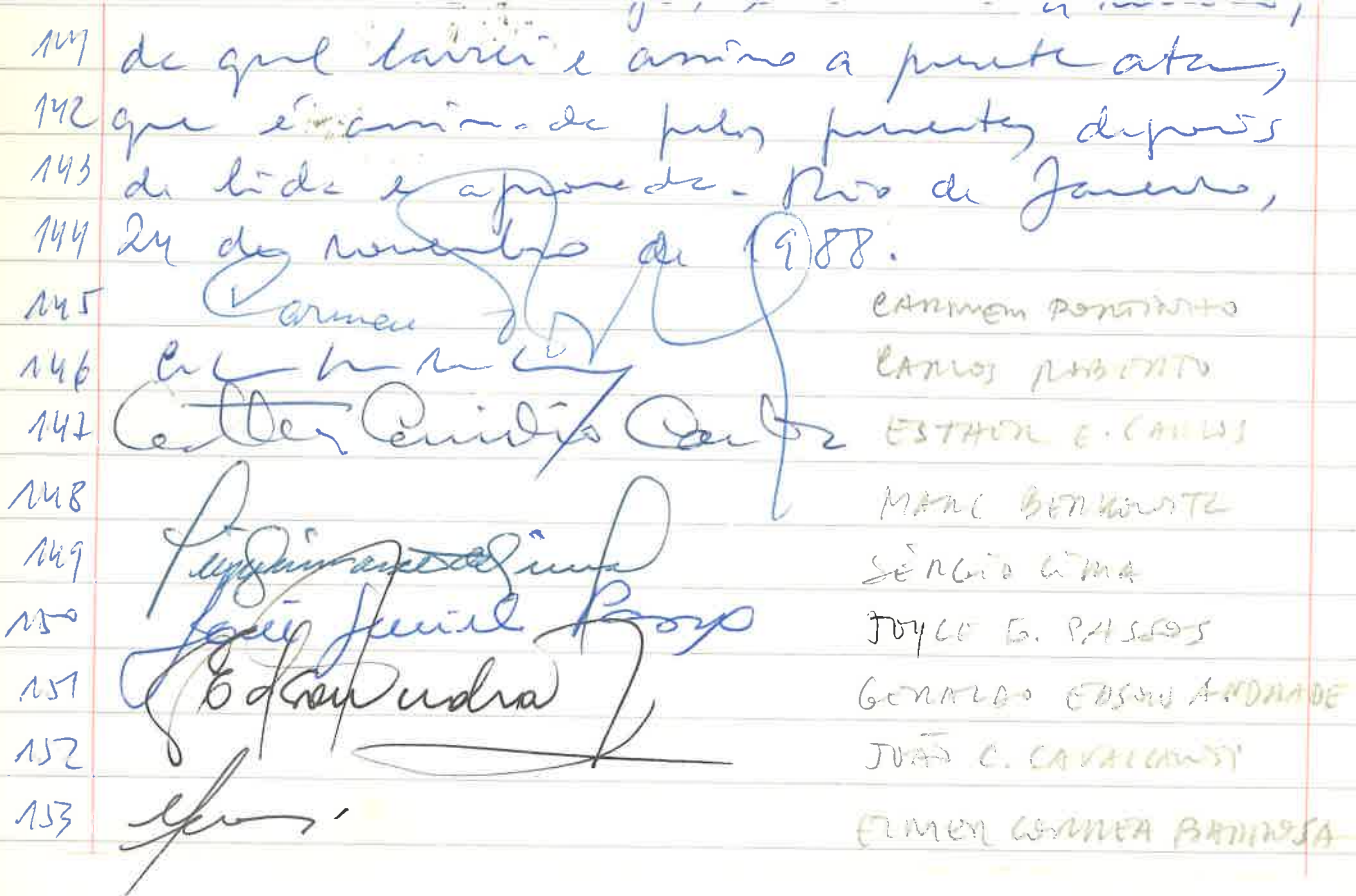 141 da qual lavrei e assino a presente ata,
142 que é assinada pelos presentes depois
143 de lida e aprovada. Rio de Janeiro,
144 24 de novembro de 1988.
145 Carmen CARMEN PORTINHO
146 CARLOS ROBERTO
147 Esther Emilio Carlos ESTHER E. CARLOS
148 MARC BERKOWITZ
149 SÉRGIO LIMA
150 Passos JOYCE G. PASSOS
151 Edson Andrade GERALDO EDSON ANDRADE
152 JOÃO C. CAVALCANTI
153 ELMER CORRÊA BARBOSA